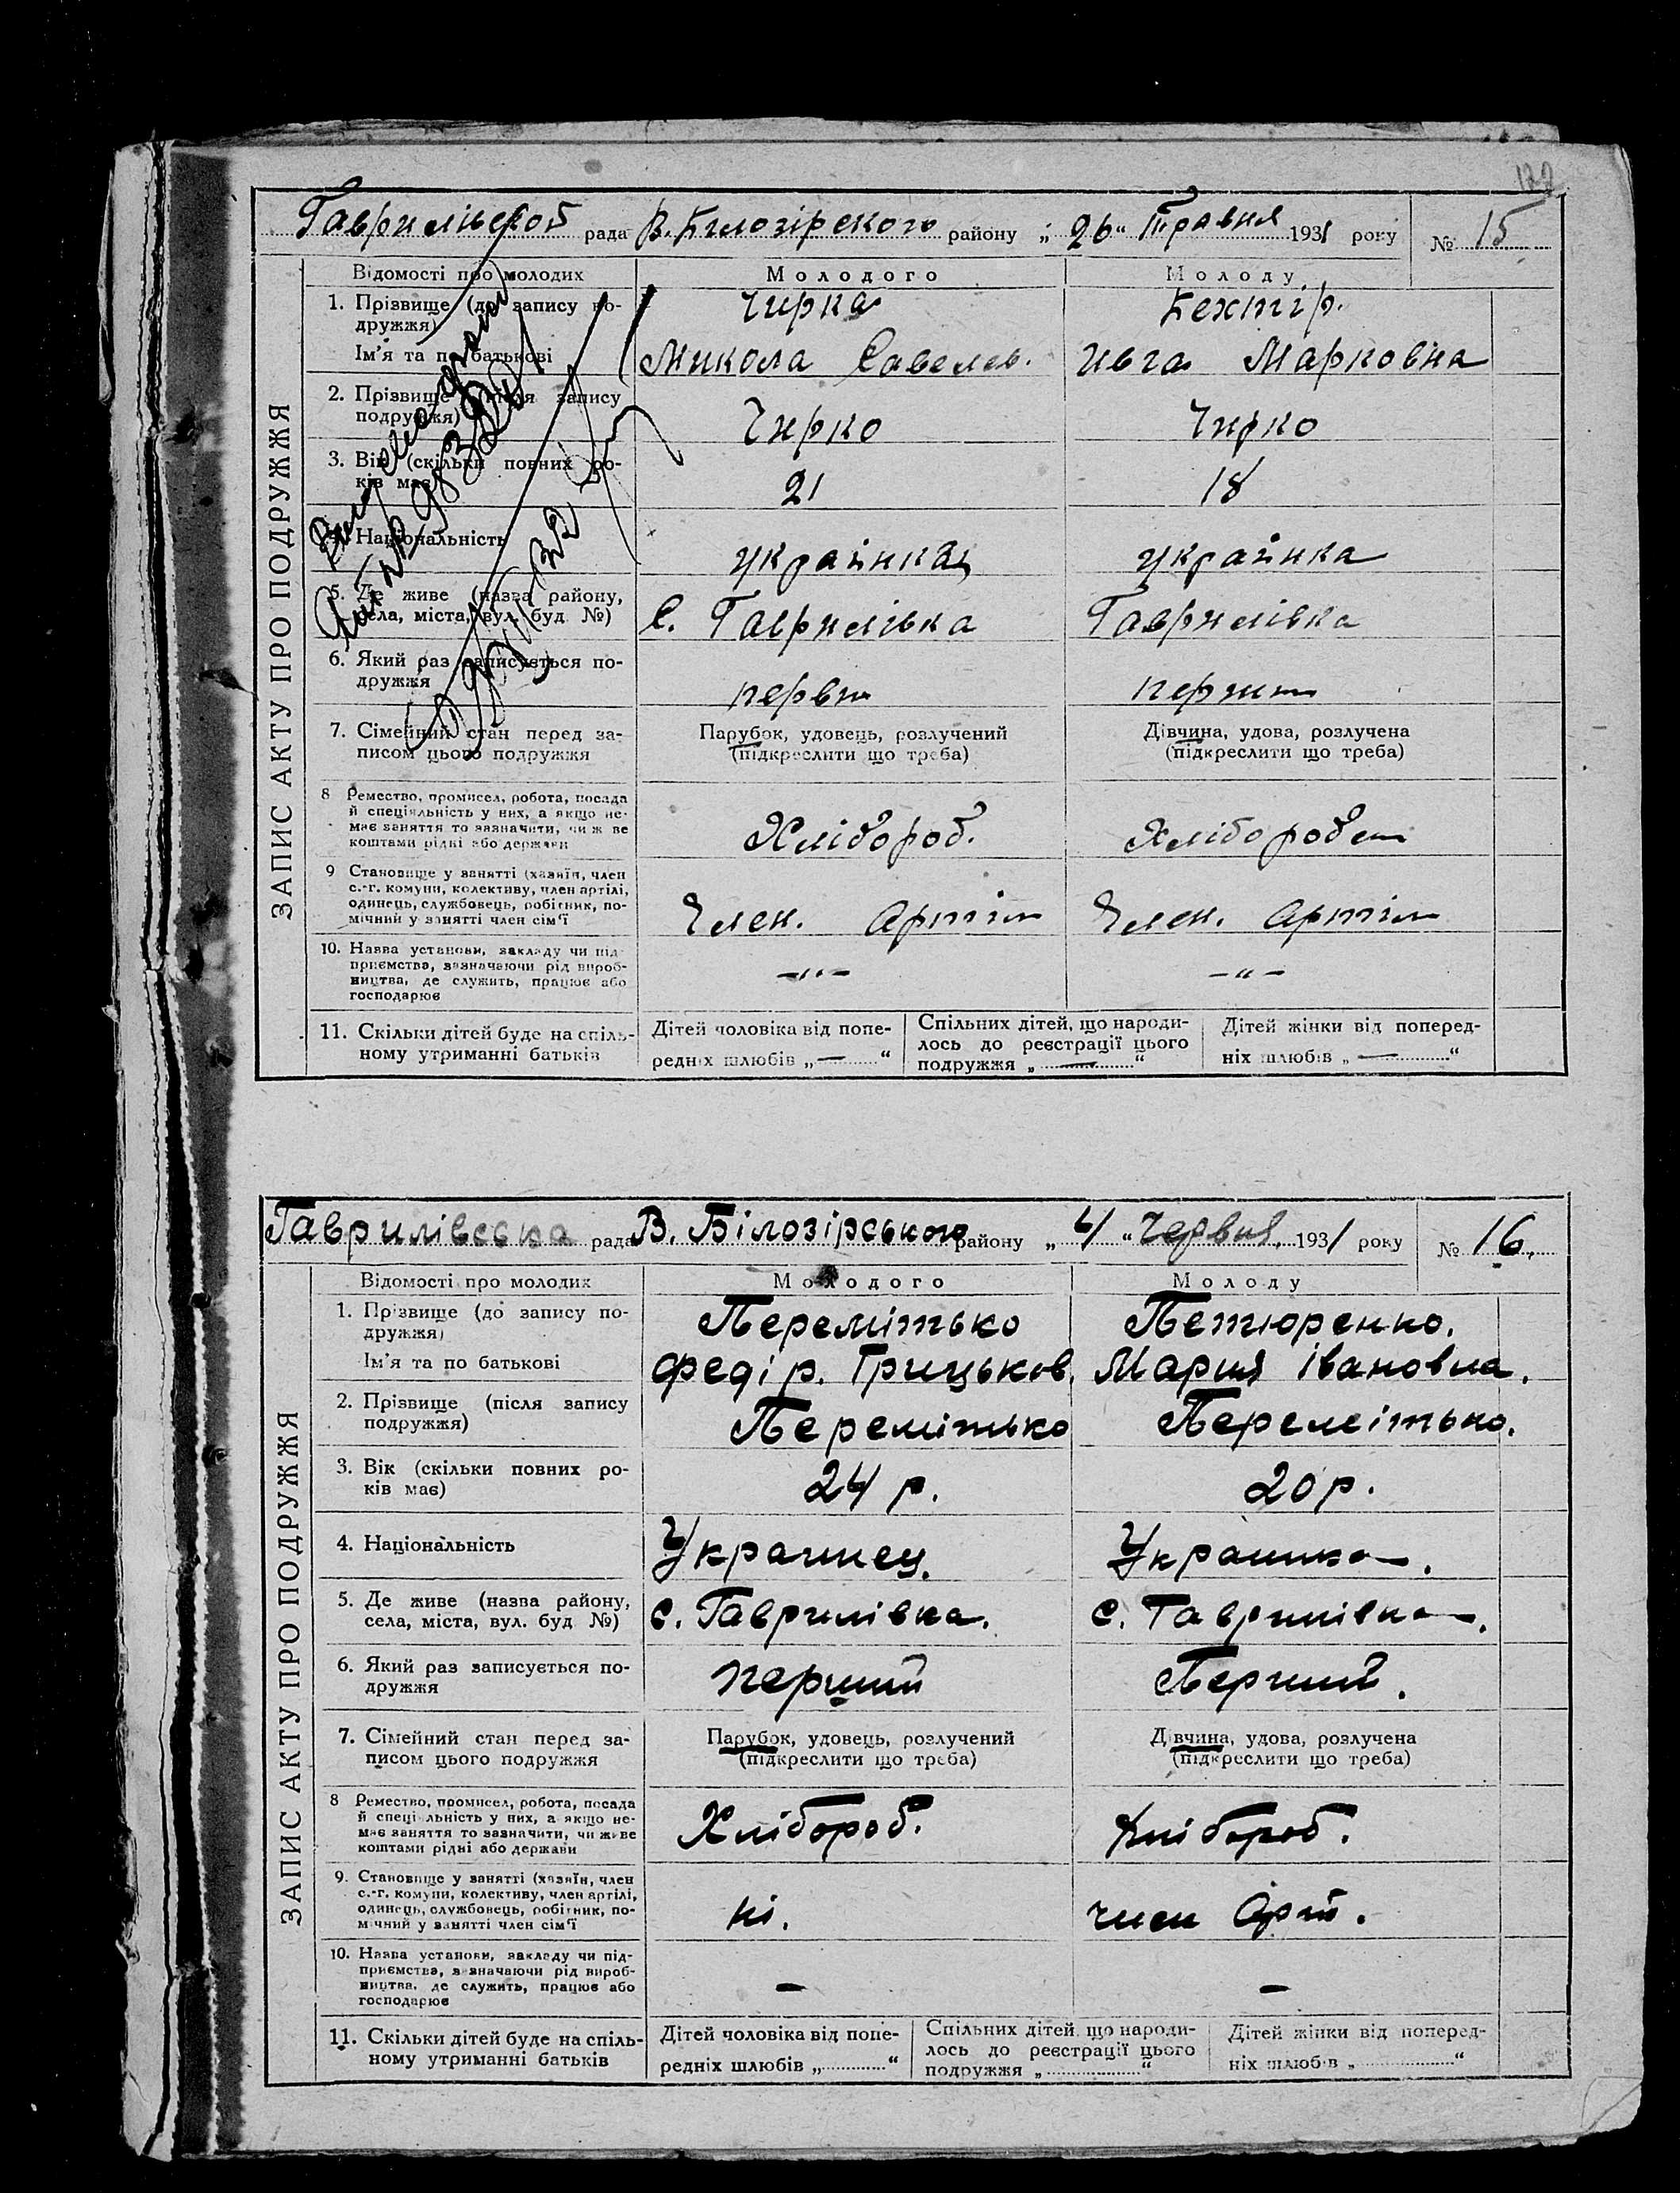 Гаврилівскої рада В. Білозірского району „ 26 “ Травня 1931 року № 15
ЗАПИС АКТУ ПРО ПОДРУЖЖЯ
Відомості про молодих Молодого Молоду
1. Прізвище (до запису по-
дружжя) Чирка Бехтір.
Ім'я та по батькові Микола Савелев. Ивга Марковна
2. Прізвище (після запису
подружжя) Чирко Чирко
3. Вік (скільки повних ро-
ків має) 21 18
4. Національність українка
5. Де живе (назва району,
села, міста, вул. буд №) С. Гаврилівка Гаврилівка
6. Який раз записується по-
дружжя
7. Сімейний стан перед за-
писом цього подружжя
Парубок, удовець, розлучений
(підкреслити що треба)
Дівчина, удова, розлучена
(підкреслити що треба)
8 Ремество, промисел, робота, посада
й спеціяльність у них, а якщо не-
має заняття то зазначити, чиж ве
коштами рідні або держави
Хлібороб.
9 Становище у занятті (хазяїн, член
с.-г. комуни, колективу, член артілі,
одинець, службовець, робітник, по-
мічний у занятті член сім'ї
Член. Артіли Член. Артіли
10. Назва установи, закладу чи під
приємства, зазначаючи рід вироб-
ництва, де служить, працює або
господарює
—"— —"—
11. Скільки дітей буде на спіль-
ному утриманні батьків
Дітей чоловіка від попе-
редніх шлюбів „ — “
Спільних дітей, що народи-
лось до реєстрації цього
подружжя „ — “
Дітей жінки від поперед-
ніх шлюбів „ — “
Гаврилівська рада В. Білозірського району „ 4 “ Червня 1931 року № 16.
ЗАПИС АКТУ ПРО ПОДРУЖЖЯ
Відомості про молодих Молодого Молоду
1. Прізвище (до запису по-
дружжя) Перемітько Петюренко.
Ім'я та по батькові Федір. Грицьков. Мария Івановна.
2. Прізвище (після запису
подружжя) Перемітько Перемітько.
3. Вік (скільки повних ро-
ків має) 24 р. 20 р.
4. Національність Украинец. Украинка.
5. Де живе (назва району,
села, міста, вул. буд №) с. Гаврилівка. с. Гаврилівка.
6. Який раз записується по-
дружжя перший Перший.
7. Сімейний стан перед за-
писом цього подружжя
Парубок, удовець, розлучений
(підкреслити що треба)
Дівчина, удова, розлучена
(підкреслити що треба)
8 Ремество, промисел, робота, посада
й спеціяльність у них, а якщо не-
має заняття то зазначити, чи живе
коштами рідні або держави
Хлібороб. Хлібороб.
9. Становище у занятті (хазяїн, член
с.-г. комуни, колективу, член артілі,
одинець, службовець, робітник, по-
мічний у занятті член сім'ї
ні. член Арт.
10. Назва установи, закладу чи під-
приємства, зазначаючи рід вироб-
ництва, де служить, працює або
господарює
— —
11. Скільки дітей буде на спіль-
ному утриманні батьків
Дітей чоловіка від попе-
редніх шлюбів „ “
Спільних дітей, що народи-
лось до реєстрації цього
подружжя „ “
Дітей жінки від поперед-
ніх шлюбів „ “